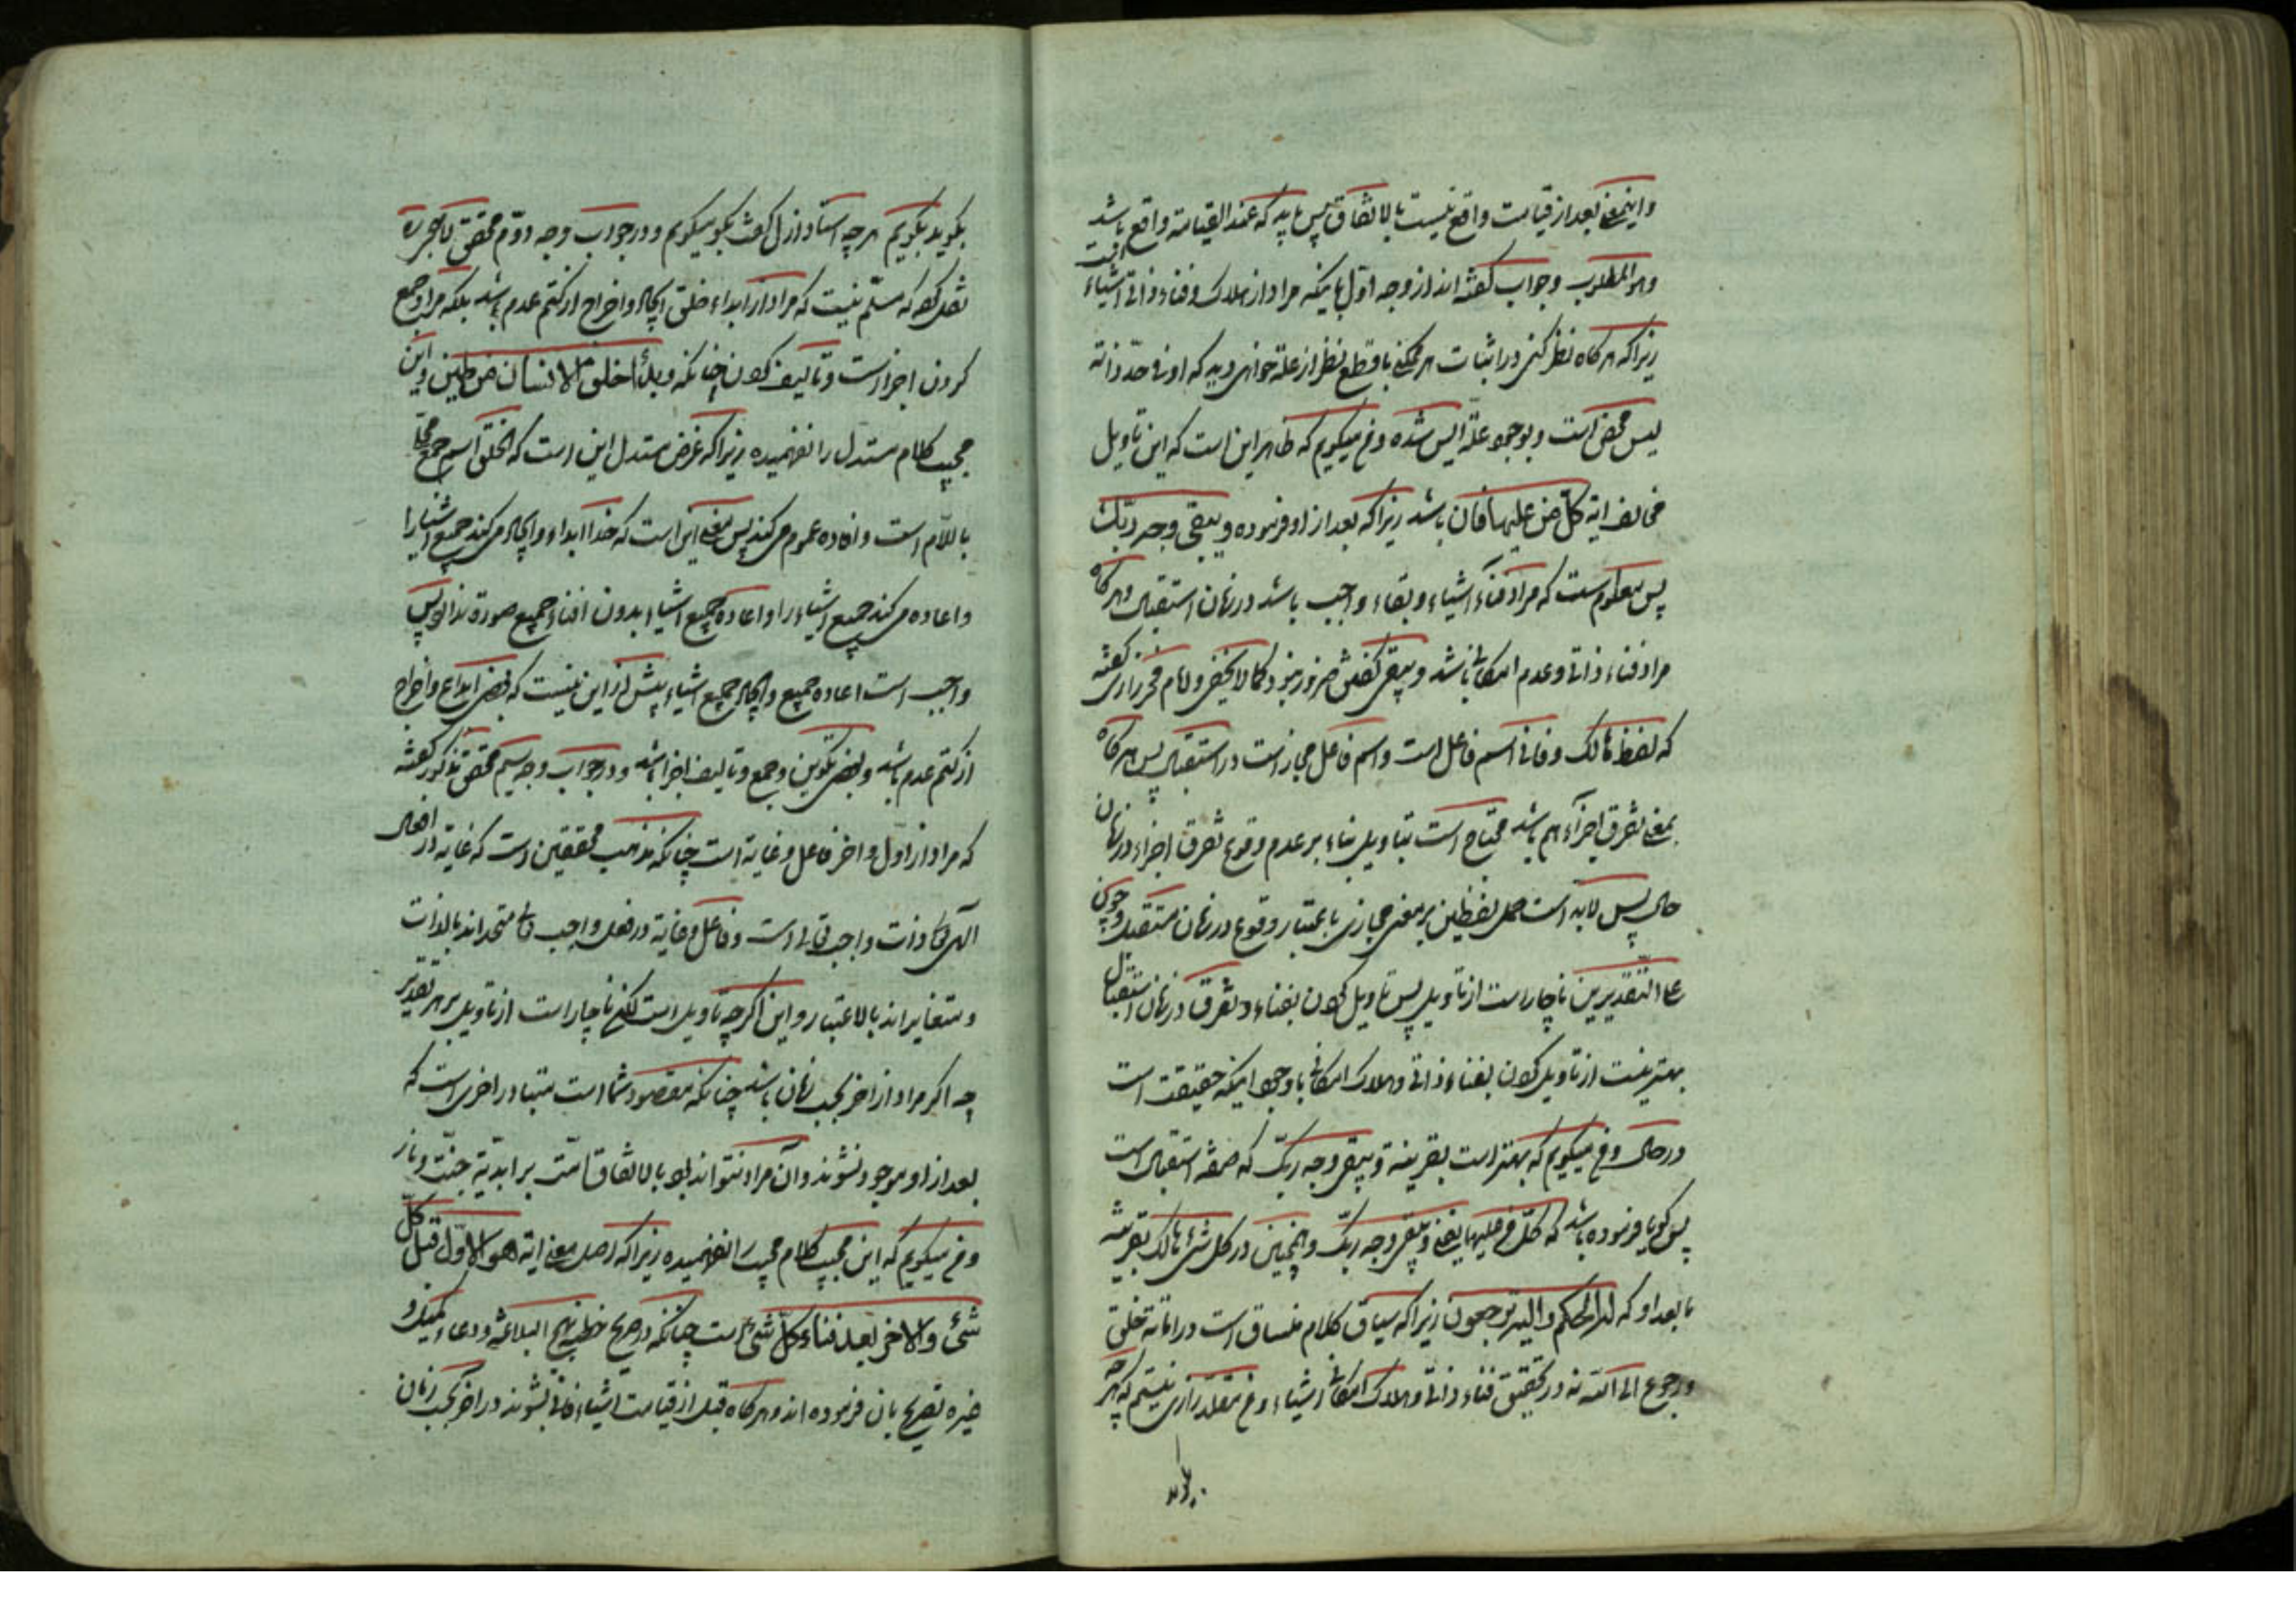 واینمعنی بعد از قیامت واقع نیست بالاتفاق پس باید که عند القیامة واقع باشد
وهو المطلوب وجواب گفته اند از وجه اول باینکه مراد از هلاک وفناء ذاتی اشیاء است
زیرا که هرکاه نظر کنی در اثبات هر ممکن با قطع نظر از علة خواهی دید که او فی حد ذاته
لیس محض است وبوجود علة ایس شده ومن میکویم که ظاهر این است که این تاویل
مخالف ایه کل من علیها فان باشد زیرا که بعد از او فرموده ویبقی وجه ربک
پس معلوم است که مراد فناء اشیاء وبقاء واجب باشد در زمان استقبال وهرکاه
مراد فناء ذاتی وعدم امکانی باشد ویبقی کفتن ضرور نبود کما لا یخفی وامام فخر رازی کفته
که لفظ هالک وفانی اسم فاعل است واسم فاعل مجاز است در استقبال پس هرکاه
بمعنی تفرق اجزاء هم باشد محتاج است بتاویل بناء بر عدم وقوع تفرق اجزاء در زمان
حال پس لابد است حمل لفظین بر معنی مجازی باعتبار وقوع در زمان مستقبل وچون
علی التقدیرین ناچار است از تاویل پس تاویل کردن بفناء وتفرق در زمان استقبال
بهتر نیست از تاویل کردن بفناء ذاتی وهلاک امکانی با وجود اینکه حقیقت است
در حال ومن میکویم که بهتر است بقرینة ویبقی وجه ربک که صیغه استقبال است
پس کویا فرموده باشد که کل من علیها یفنی ویبقی وجه ربک وهمچنین در کل شئ هالک بقرینه
ما بعد او که له الحکم والیه ترجعون زیرا که سیاق کلام منساق است در افناء خلق
ورجوع الی الله نه در تحقیق فناء ذاتی وهلاک امکانی اشیاء ومن مقلد رازی نیستم که هرچه
بکوید
بکوید بکویم هرچه استاد ازل کفت بکو میکویم ودر جواب وجه دوم محقق لاهجی ره
نقل کرده که مسلم نیست که مراد از ابداء خلق ایجاد واخراج از کتم عدم باشد بلکه مراد جمع
کردن اجزا است وتالیف کردن چنانکه وبدأ خلق الانسان من طین واین
مجیب کلام مستدل را نفهمیده زیرا که غرض مستدل این است که الخلق اسم جمع محلی
باللام است وافاده عموم می کند پس معنی این است که خدا ابداء وایجاد می کند جمیع اشیا را
واعاده می کند جمیع اشیاء را واعاده جمیع اشیاء بدون افناء جمیع صورة ندارد پس
واجب است اعاده جمیع وایجاد جمیع اشیاء پیش از این نیست که بعضی ابداع واخراج
از کتم عدم باشد وبعضی تکوین وجمع وتالیف اجزا باشد ودر جواب وجه سیم محقق مذکور کفته
که مراد از اول واخر فاعل وغایة است چنانکه مذهب محققین است که غایة در افعال
الهی ذات واجب تعالی است وفاعل وغایة در فعل واجب تعالی متحد اند بالذات
ومتغایر اند بالاعتبار واین اکرچه تاویل است لکن ناچار است از تاویل بر هر تقدیر
چه اکر مراد از اخر بحسب زمان باشد چنانکه مقصود شما است متبادر اخری است که
بعد از او موجود نشوند وآن مراد نتواند بود بالاتفاق امت بر ابدیة جنت ونار
ومن میکویم که این مجیب کلام مجیب را نفهمیده زیرا که اصل معنی ایه هو الاول قبل کل
شئ والاخر بعد فناء کل شئ است چنانکه در صریح خطبه نهج البلاغه ودعاء کمیل و
غیره تصریح بان فرموده اند وهرکاه قبل از قیامت اشیاء فانی بشوند در اخر بحسب زمان